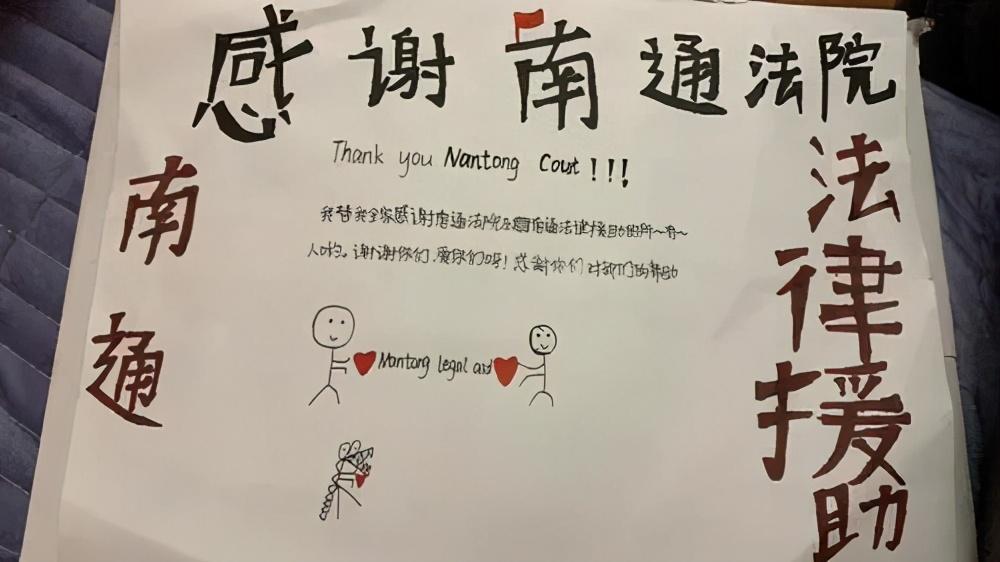 感谢南通法院
Thank you Nantong Court !!!
南通
法律援助
我替我全家感谢南通法院及南通法律援助的所~有~
人哟。谢谢你们,爱你们呀!感谢你们对我们的帮助
Nantong legal aid